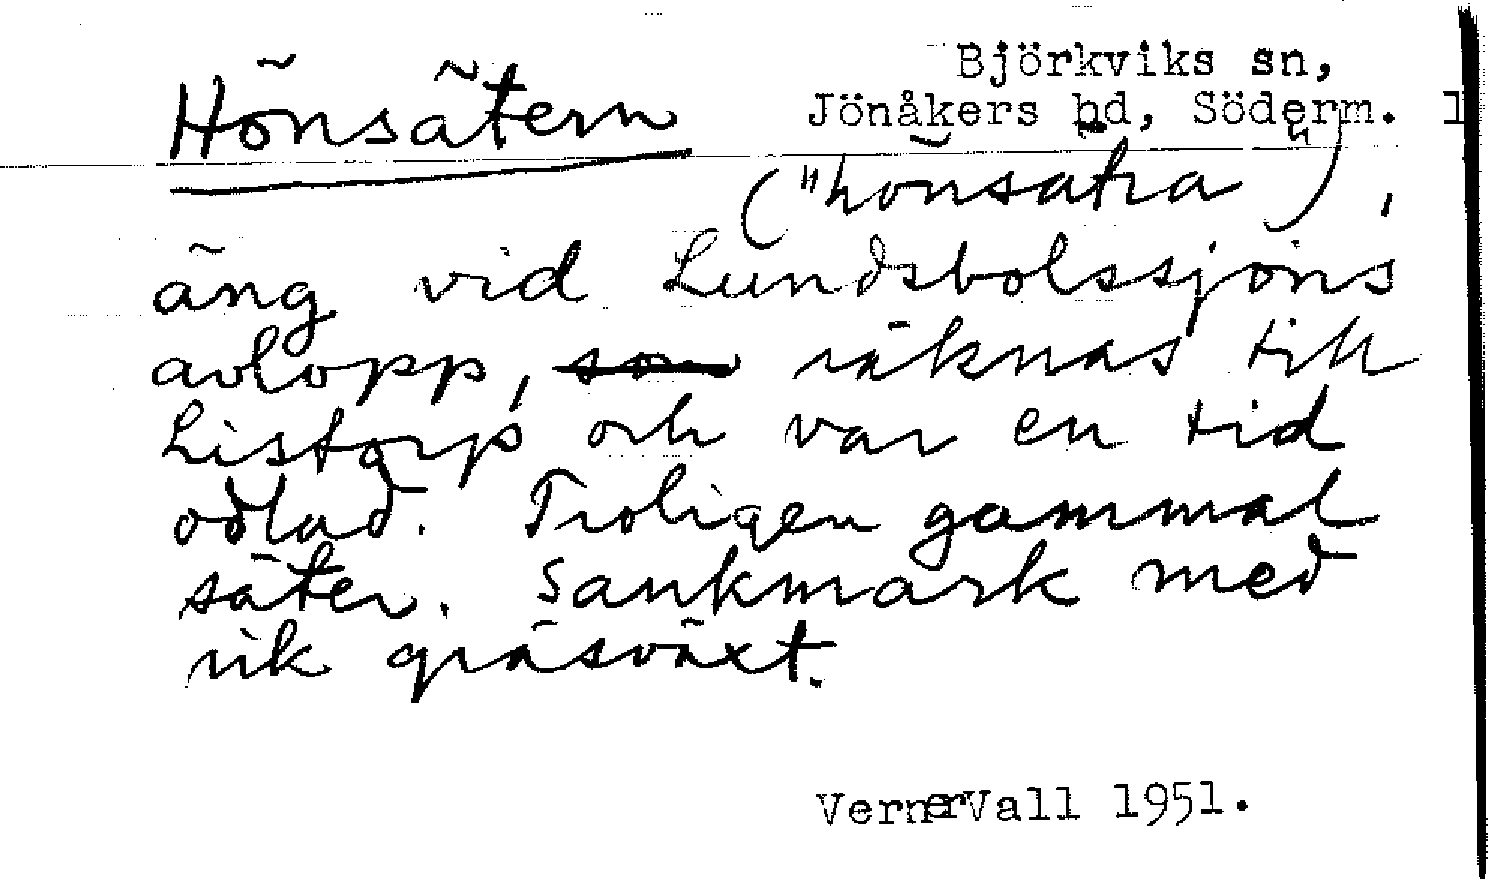 Björkviks sn,
Jönåkers hd, Söderm. l
Hönsätern
("hönsätra"),
äng vid Lundsbolssjöns
avlopp, ~~som~~ räknas till
Listorp och var en tid
odlad. Troligen gammal
säter. Sankmark med
rik gräsväxt.
Verner Vall 1951.